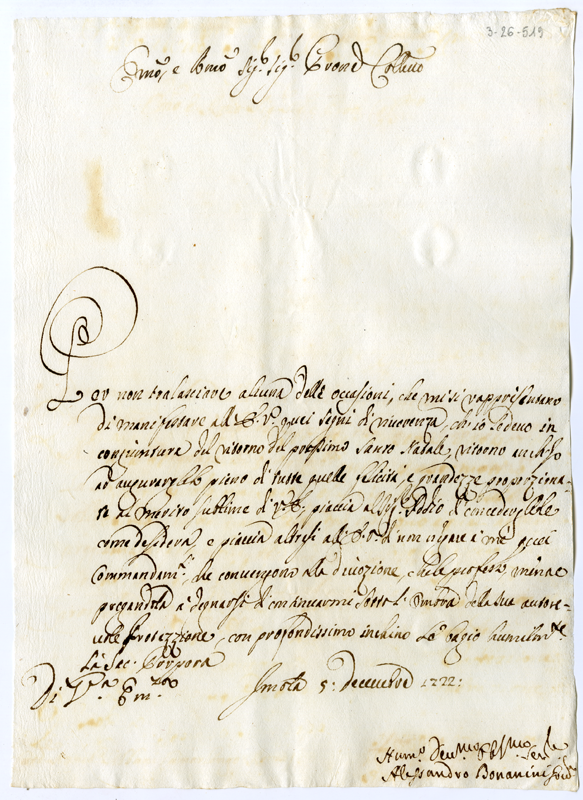 3-26-519
Emo, e Rmo Sigr. Sigr.
Per non tralasciare alcuna delle occasioni, che mi si rappresentano
di manifestare all' E. V. quei segni di riverenza, ch' io le devo in
congiuntura del ritorno del prossimo Santo Natale, ritorno
ad augurarglielo pieno di tutte quelle felicità, e grandezze proporziona-
te al merito sublime di V. E., piaccia al Sigr. Iddio di concederglielo
come desidera, e piaccia altresì all' E. V. di non negare a me quei
Commandamti., che convengono alla divozione, che le professo, mentre
pregandola a degnarsi di continuarmi sotto l' ombra della sua autore-
vole Protezzione, con profondissimo inchino Le bagio humilmte.
La Sac. Porpora
Di V. Emza Imola 5: decembre 1722:
Humo. Devmo.
Alessandro Bonacini